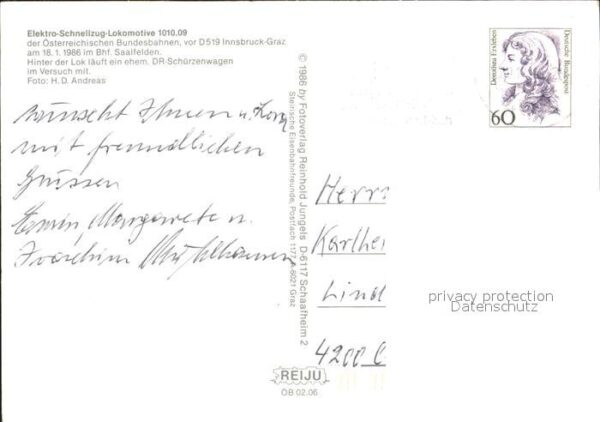 Elektro-Schnellzug-Lokomotive 1010.09
der Österreichischen Bundesbahnen, vor D 519 Innsbruck-Graz
am 18.1.1986 im Bhf. Saalfelden.
Hinter der Lok läuft ein ehem. DR-Schürzenwagen
im Versuch mit.
Foto: H. D. Andreas
wünscht Ihnen u.
mit freundlichen
Grüssen
Erwin, Margarete u.
Joachim
© 1986 by Fotoverlag Reinhold Jungels D-6117 Schaafheim 2
Steirische Eisenbahnfreunde, Postfach 1177, A-8021 Graz
Dorothea Erxleben
Deutsche Bundespost
60
Herrn
Karlhe
Lind
4200 O
privacy protection
Datenschutz
REIJU
ÖB 02.06